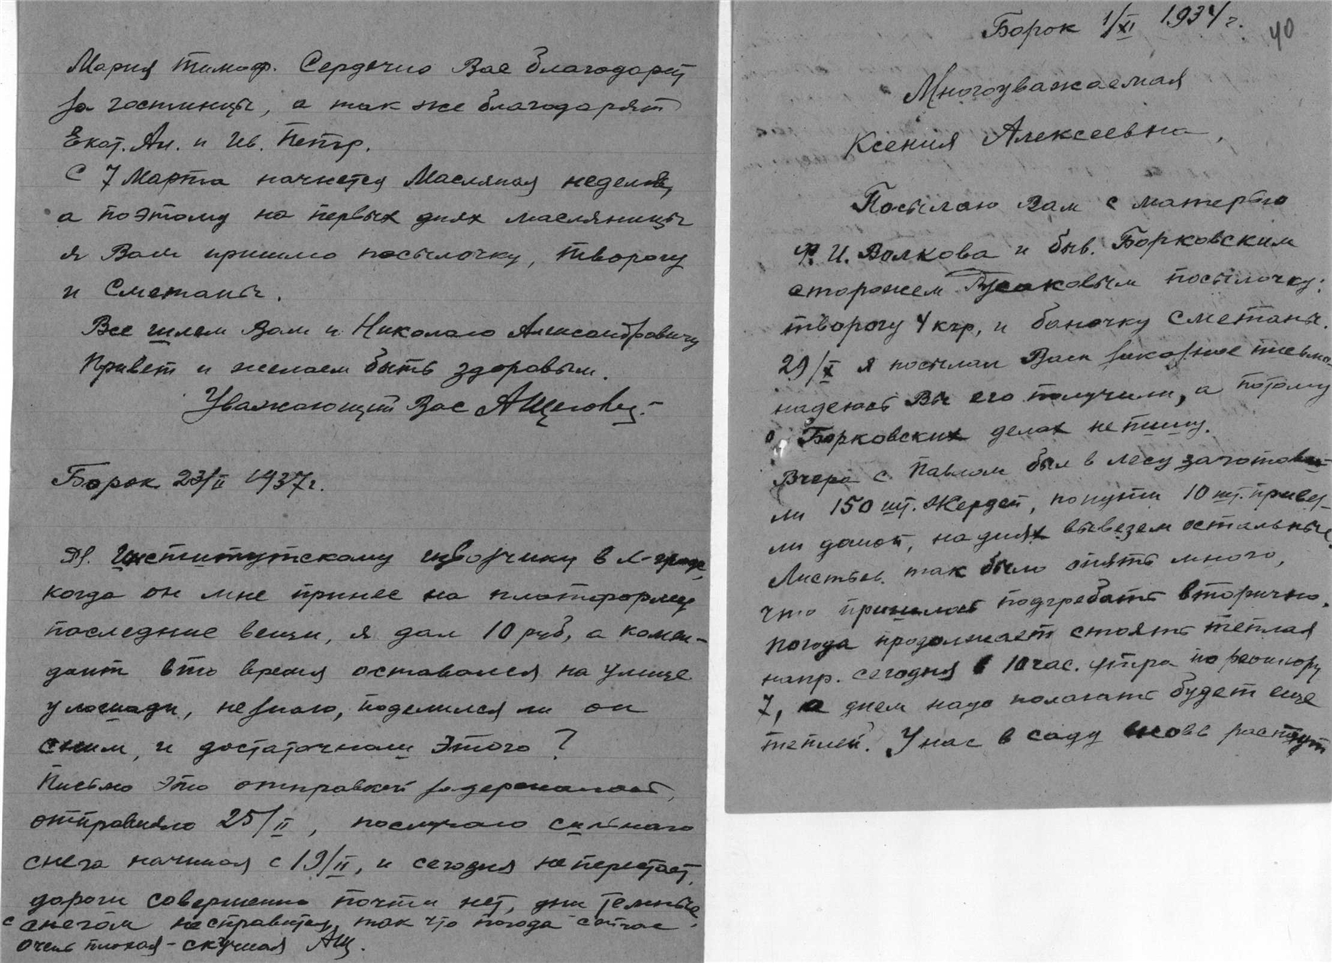 Мария Тимоф. Сердечно Вас благодарит
за гостинцы, а так же благодарят
Екат. Ан. и Ив. Петр.
С 7 Марта начнется Масляная неделя,
а поэтому на первых днях масляницы
я Вам пришлю посылочку, творогу
и сметаны.
Все шлем Вам и Николаю Александровичу
Привет и желаем быть здоровым.
Уважающий Вас АЩеговц.
Борок 23/II 1937г.
Институтскому извозчику в
когда он мне принес на платформу
последние вещи, я дал 10 руб, а комен-
дант в то время оставался на улице
у лошади, незнаю, поделился ли он
сним, и достаточноли этого?
Письмо это отправкой задержалось,
отправляю 25/II, послучаю сильного
снега начиная с 19/II, и сегодня неперестает,
дороги совершенно почти нет, дни темные,
с снегом несправится, так что погода сейчас
очень плохая - скучная АЩ.
Борок 1/XI 1934г.
40
Многоуважаемая
Ксения Алексеевна,
Посылаю Вам с матерью
Ф. И. Волкова и быв. Борковским
сторожем Гусаковым посылочку:
творогу 4 кгр, и баночку сметаны.
29/X я посылал Вам заказное письмо
надеюсь Вы его получили, а потому
о Борковских делах непишу.
Вчера с Павлом был в лесу заготови-
ли 150 шт. жердей, попути 10 шт. привез-
ли домой, наднях вывезем остальные.
Листьев так было опять много,
что пришлось подгребать вторично.
погода продолжает стоять теплая
напр. сегодня в 10 час. утра по реомюру
7, а днем надо полагать будет еще
теплей. У нас в саду вновь растут